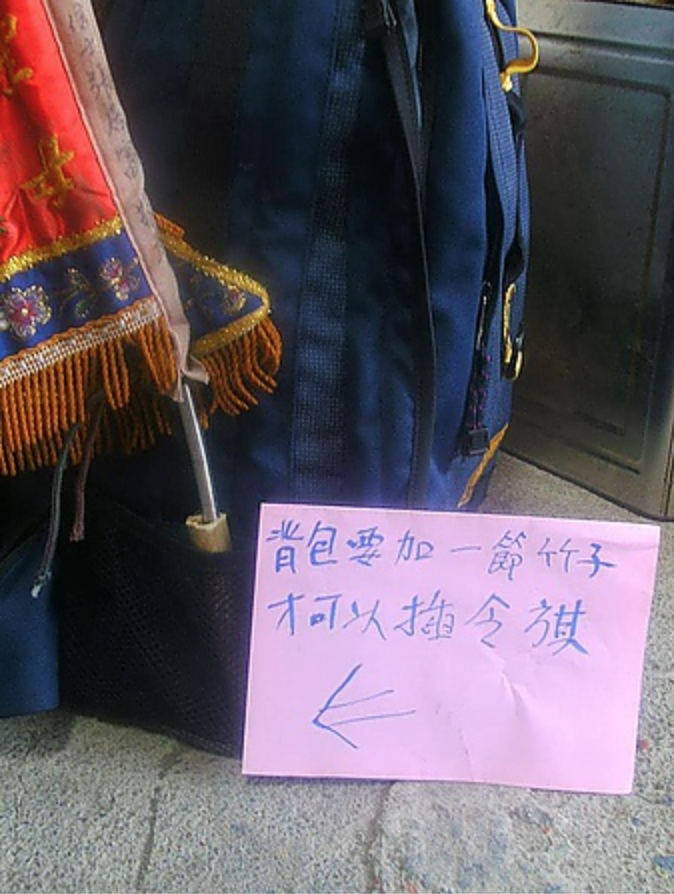 背包要加一節竹子
才可以插令旗